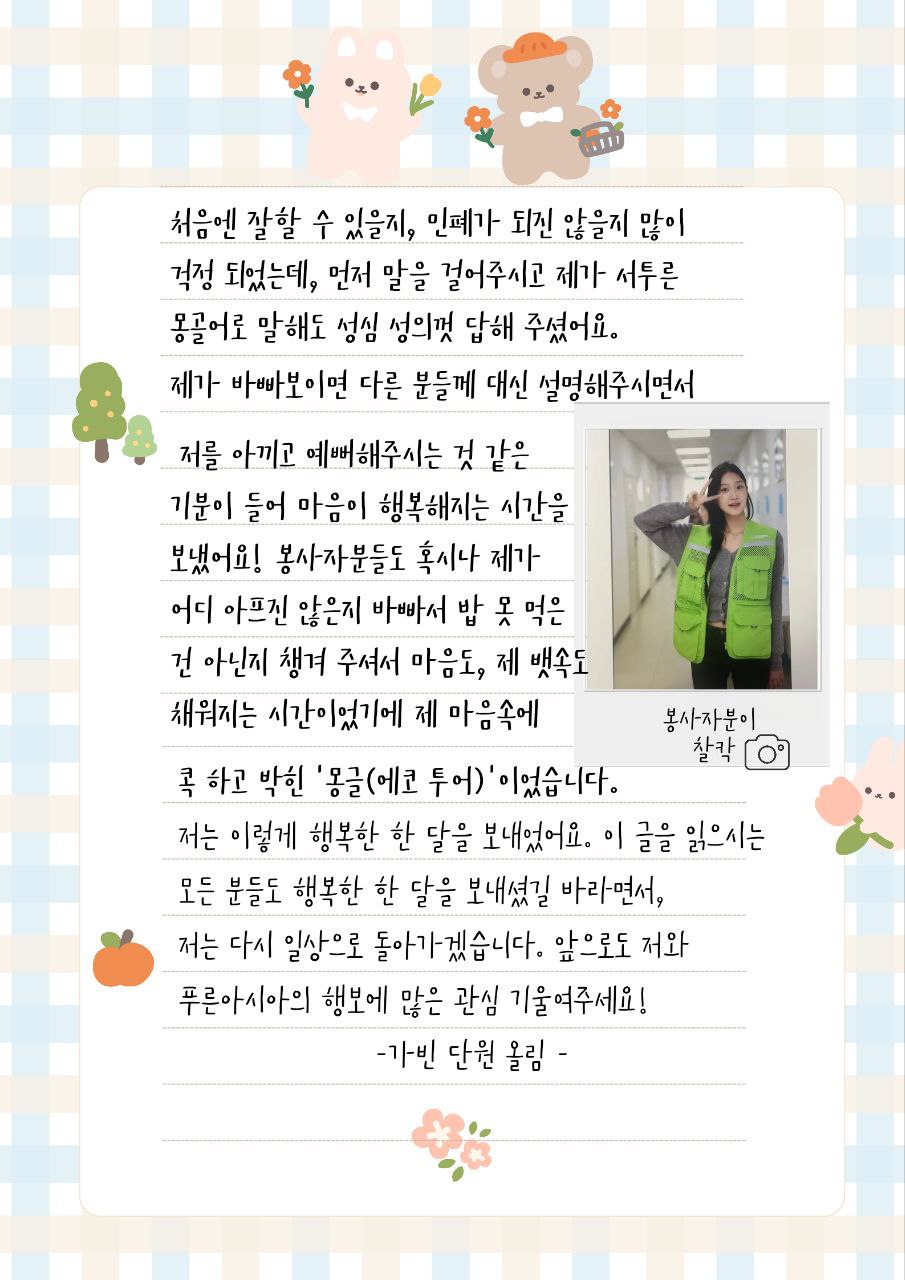 처음엔 잘할 수 있을지, 민폐가 되진 않을지 많이
걱정 되었는데, 먼저 말을 걸어주시고 제가 서투른
몽골어로 말해도 성심 성의껏 답해 주셨어요.
제가 바빠보이면 다른 분들께 대신 설명해주시면서
저를 아끼고 예뻐해주시는 것 같은
기분이 들어 마음이 행복해지는 시간을
보냈어요! 봉사자분들도 혹시나 제가
어디 아프진 않은지 바빠서 밥 못 먹은
건 아닌지 챙겨 주셔서 마음도, 제 뱃속도
채워지는 시간이었기에 제 마음속에
콕 하고 박힌 '몽글(에코 투어)'이었습니다.
저는 이렇게 행복한 한 달을 보내었어요. 이 글을 읽으시는
모든 분들도 행복한 한 달을 보내셨길 바라면서,
저는 다시 일상으로 돌아가겠습니다. 앞으로도 저와
푸른아시아의 행보에 많은 관심 기울여주세요!
-가빈 단원 올림 -
봉사자분이
찰칵